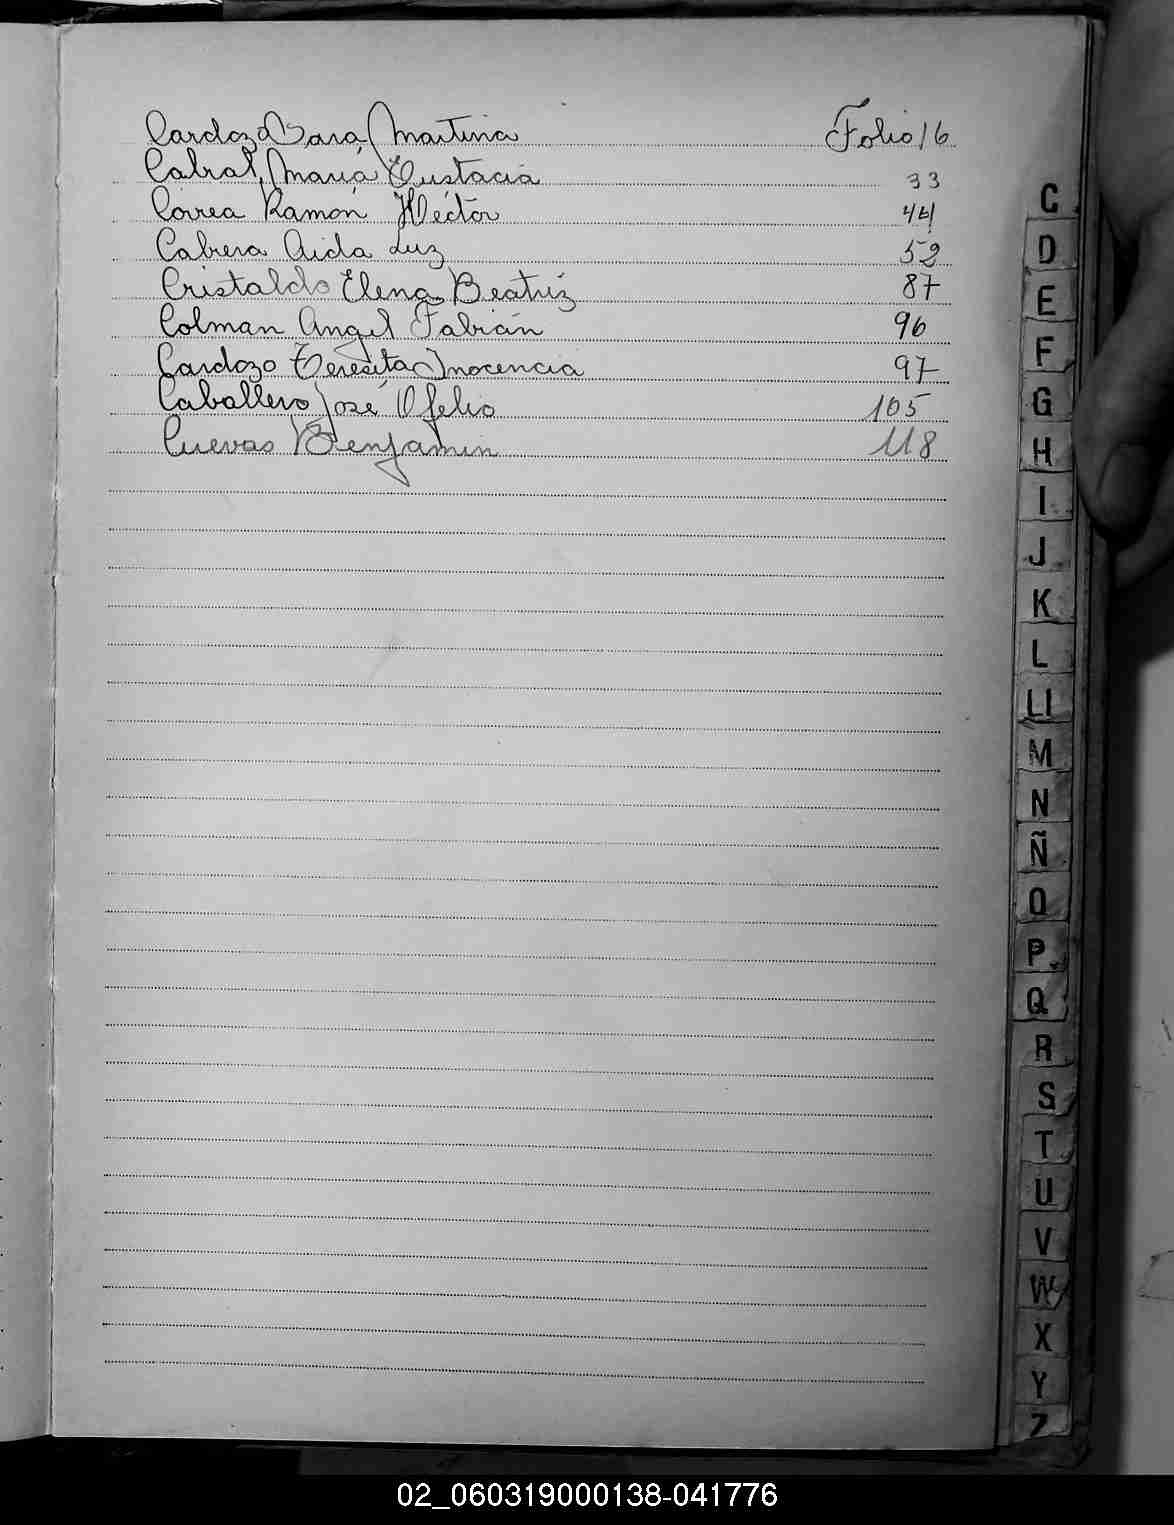 Cardozo Sara, Martina Folio 16
Cabral, María Eustacia 33
Correa Ramón Héctor 44
Cabrera Aida Luz 52
Cristaldo Elena Beatríz 87
Colman Angel Fabián 96
Cardozo Teresita Inocencia 97
Caballero José Ofelio 105
Cuevas Benjamin 118
C
D
E
F
G
H
I
J
K
L
Ll
M
N
Ñ
O
P
Q
R
S
T
U
V
W
X
Y
Z
02_060319000138-041776